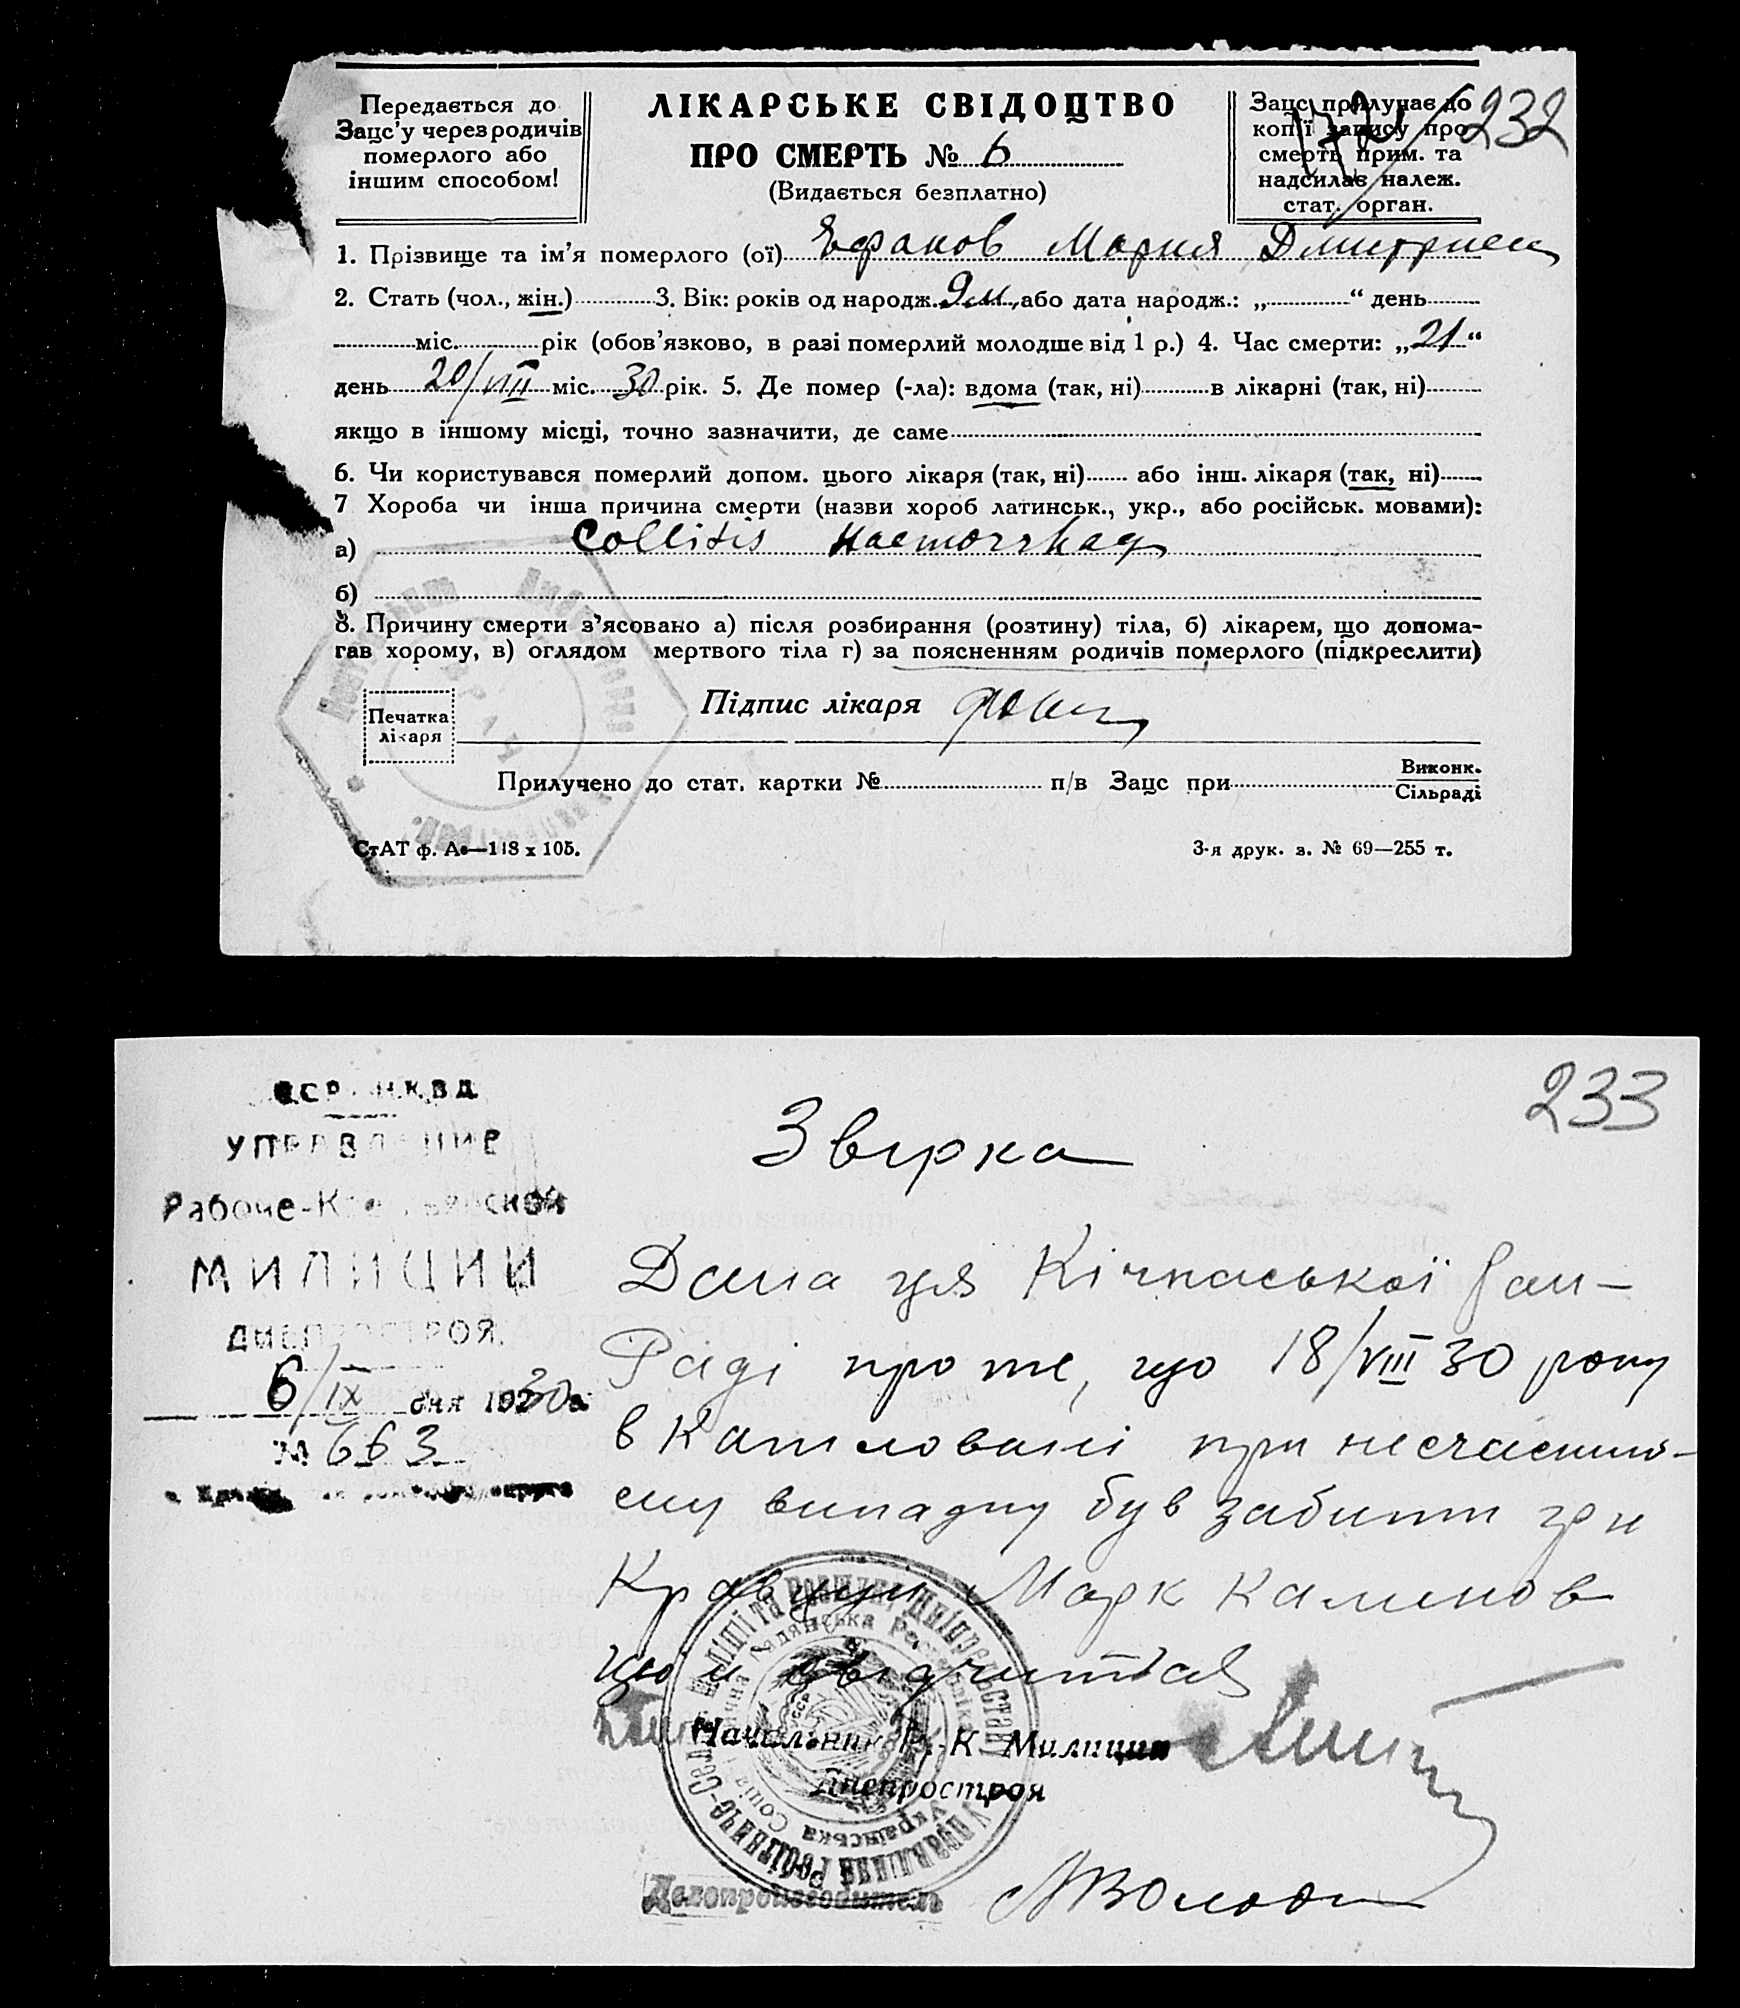 Передається до
Зацс'у через родичів
померлого або
іншим способом!
ЛІКАРСЬКЕ СВІДОЦТВО
ПРО СМЕРТЬ № 6
(Видається безплатно)
Зацс прилучає до
копії запису про
смерть прим. та
надсилає належ.
стат. орган.
172
232
1. Прізвище та ім'я померлого (ої) Ефанов Мария Дмитриев
2. Стать (чол., жін.) 3. Вік: років од народж. 9 м. або дата народж.: „ “ день
міс. рік (обов'язково, в разі померлий молодше від 1 р.) 4. Час смерти: „21“
день 20/VIII міс. 30 рік. 5. Де помер (-ла): вдома (так, ні) в лікарні (так, ні)
якщо в іншому місці, точно зазначити, де саме
6. Чи користувався померлий допом. цього лікаря (так, ні) або інш. лікаря (так, ні)
7 Хороба чи інша причина смерти (назви хороб латинськ., укр., або російськ. мовами):
а) Collitis Haemorrhag
б)
8. Причину смерти з'ясовано а) після розбирання (розтину) тіла, б) лікарем, що допома-
гав хорому, в) оглядом мертвого тіла г) за поясненням родичів померлого (підкреслити)
Підпис лікаря
Печатка
лікаря
Прилучено до стат. картки № п/в Зацс при Виконк.
Сільраді
СтАТ ф. А—148 х 105.
3-я друк. з. № 69—255 т.
233
УССР НКВД
УПРАВЛЕНИЕ
Рабоче-Крестьянской
МИЛИЦИИ
ДНЕПРОСТРОЯ.
6/IX дня 1930 г.
№ 663
округа
Звірка
Дана ця Кічкаської
Раді про те, що 18/VIII 30 року
в Катловані при несчасному
випадку був забити гр н
Кравцун Марк Калинов
що и свідчиться
Начальник Р.-К. Милиции
Днепростроя
Управління Робітничо-Селянської Міліції та Розшуку Дніпрельстану
Українська Соціалістична Радянська Республіка
Делопроизводитель